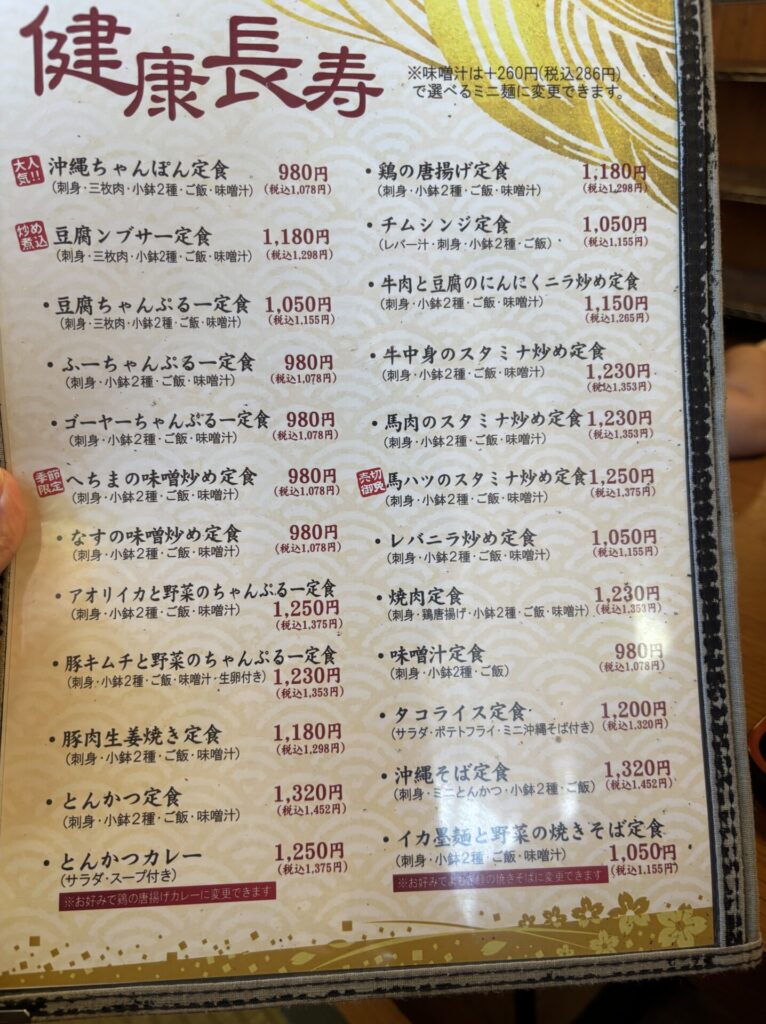 健康長寿
※味噌汁は+260円(税込286円)
で選べるミニ麺に変更できます。
大人気!!
沖縄ちゃんぽん定食 980円
(刺身・三枚肉・小鉢2種・ご飯・味噌汁) (税込1,078円)
炒め煮込
豆腐ンブサー定食 1,180円
(刺身・三枚肉・小鉢2種・ご飯・味噌汁) (税込1,298円)
・豆腐ちゃんぷるー定食 1,050円
(刺身・三枚肉・小鉢2種・ご飯・味噌汁) (税込1,155円)
・ふーちゃんぷるー定食 980円
(刺身・小鉢2種・ご飯・味噌汁) (税込1,078円)
・ゴーヤーちゃんぷるー定食 980円
(刺身・小鉢2種・ご飯・味噌汁) (税込1,078円)
季節限定
へちまの味噌炒め定食 980円
(刺身・小鉢2種・ご飯・味噌汁) (税込1,078円)
・なすの味噌炒め定食 980円
(刺身・小鉢2種・ご飯・味噌汁) (税込1,078円)
・アオリイカと野菜のちゃんぷるー定食
(刺身・小鉢2種・ご飯・味噌汁) 1,250円
(税込1,375円)
・豚キムチと野菜のちゃんぷるー定食
(刺身・小鉢2種・ご飯・味噌汁・生卵付き) 1,230円
(税込1,353円)
・豚肉生姜焼き定食 1,180円
(刺身・小鉢2種・ご飯・味噌汁) (税込1,298円)
・とんかつ定食 1,320円
(刺身・小鉢2種・ご飯・味噌汁) (税込1,452円)
・とんかつカレー 1,250円
(サラダ・スープ付き) (税込1,375円)
※お好みで鶏の唐揚げカレーに変更できます
・鶏の唐揚げ定食 1,180円
(刺身・小鉢2種・ご飯・味噌汁) (税込1,298円)
・チムシンジ定食 1,050円
(レバー汁・刺身・小鉢2種・ご飯) (税込1,155円)
・牛肉と豆腐のにんにくニラ炒め定食
(刺身・小鉢2種・ご飯・味噌汁) 1,150円
(税込1,265円)
・牛中身のスタミナ炒め定食
(刺身・小鉢2種・ご飯・味噌汁) 1,230円
(税込1,353円)
・馬肉のスタミナ炒め定食 1,230円
(刺身・小鉢2種・ご飯・味噌汁) (税込1,353円)
売切御免
馬ハツのスタミナ炒め定食 1,250円
(刺身・小鉢2種・ご飯・味噌汁) (税込1,375円)
・レバニラ炒め定食 1,050円
(刺身・小鉢2種・ご飯・味噌汁) (税込1,155円)
・焼肉定食 1,230円
(刺身・鶏唐揚げ・小鉢2種・ご飯・味噌汁) (税込1,353円)
・味噌汁定食 980円
(刺身・小鉢2種・ご飯) (税込1,078円)
・タコライス定食 1,200円
(サラダ・ポテトフライ・ミニ沖縄そば付き) (税込1,320円)
・沖縄そば定食 1,320円
(刺身・ミニとんかつ・小鉢2種・ご飯) (税込1,452円)
・イカ墨麺と野菜の焼きそば定食
(刺身・小鉢2種・ご飯・味噌汁) 1,050円
(税込1,155円)
※お好みでよもぎ麺の焼きそばに変更できます